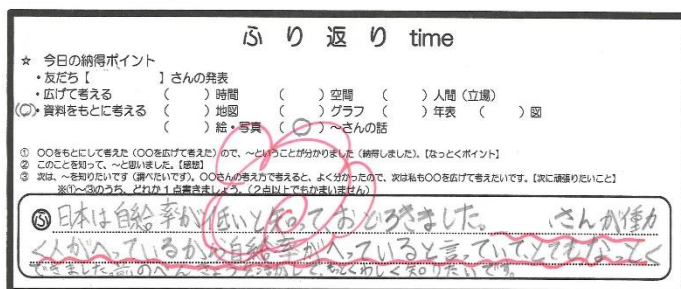 ふり返り time
☆ 今日の納得ポイント
・友だち【 】さんの発表
・広げて考える ( )時間 ( )空間 ( )人間（立場）
(○)・資料をもとに考える ( )地図 ( )グラフ ( )年表 ( )図
( )絵・写真 (○)～さんの話
① 〇〇をもとにして考えた（〇〇を広げて考えた）ので、～ということが分かりました（納得しました）。【なっとくポイント】
② このことを知って、～と思いました。【感想】
③ 次は、～を知りたいです（調べたいです）。〇〇さんの考え方で考えると、よく分かったので、次は私も〇〇を広げて考えたいです。【次に頑張りたいこと】
※①～③のうち、どれか１点書きましょう。（２点以上でもかまいません）
ふ 日本は自給率が低いと知っておどろきました。 さんが働か
く人がへっているから自給率がへっていると言っていて、とてもなっとく
できました。 もっとくわしく知りたいです。